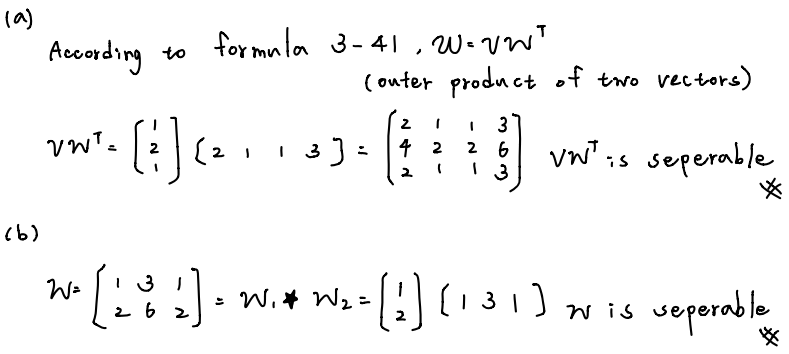 (a)
According to formula 3-41, W=vw^T
(outer product of two vectors)
vw^T = [1 2 1] [2 1 1 3] = [2 1 1 3 4 2 2 6 2 1 1 3] vw^T is seperable
(b)
W= [1 3 1 2 6 2] = W1 ★ W2 = [1 2] [1 3 1] w is seperable